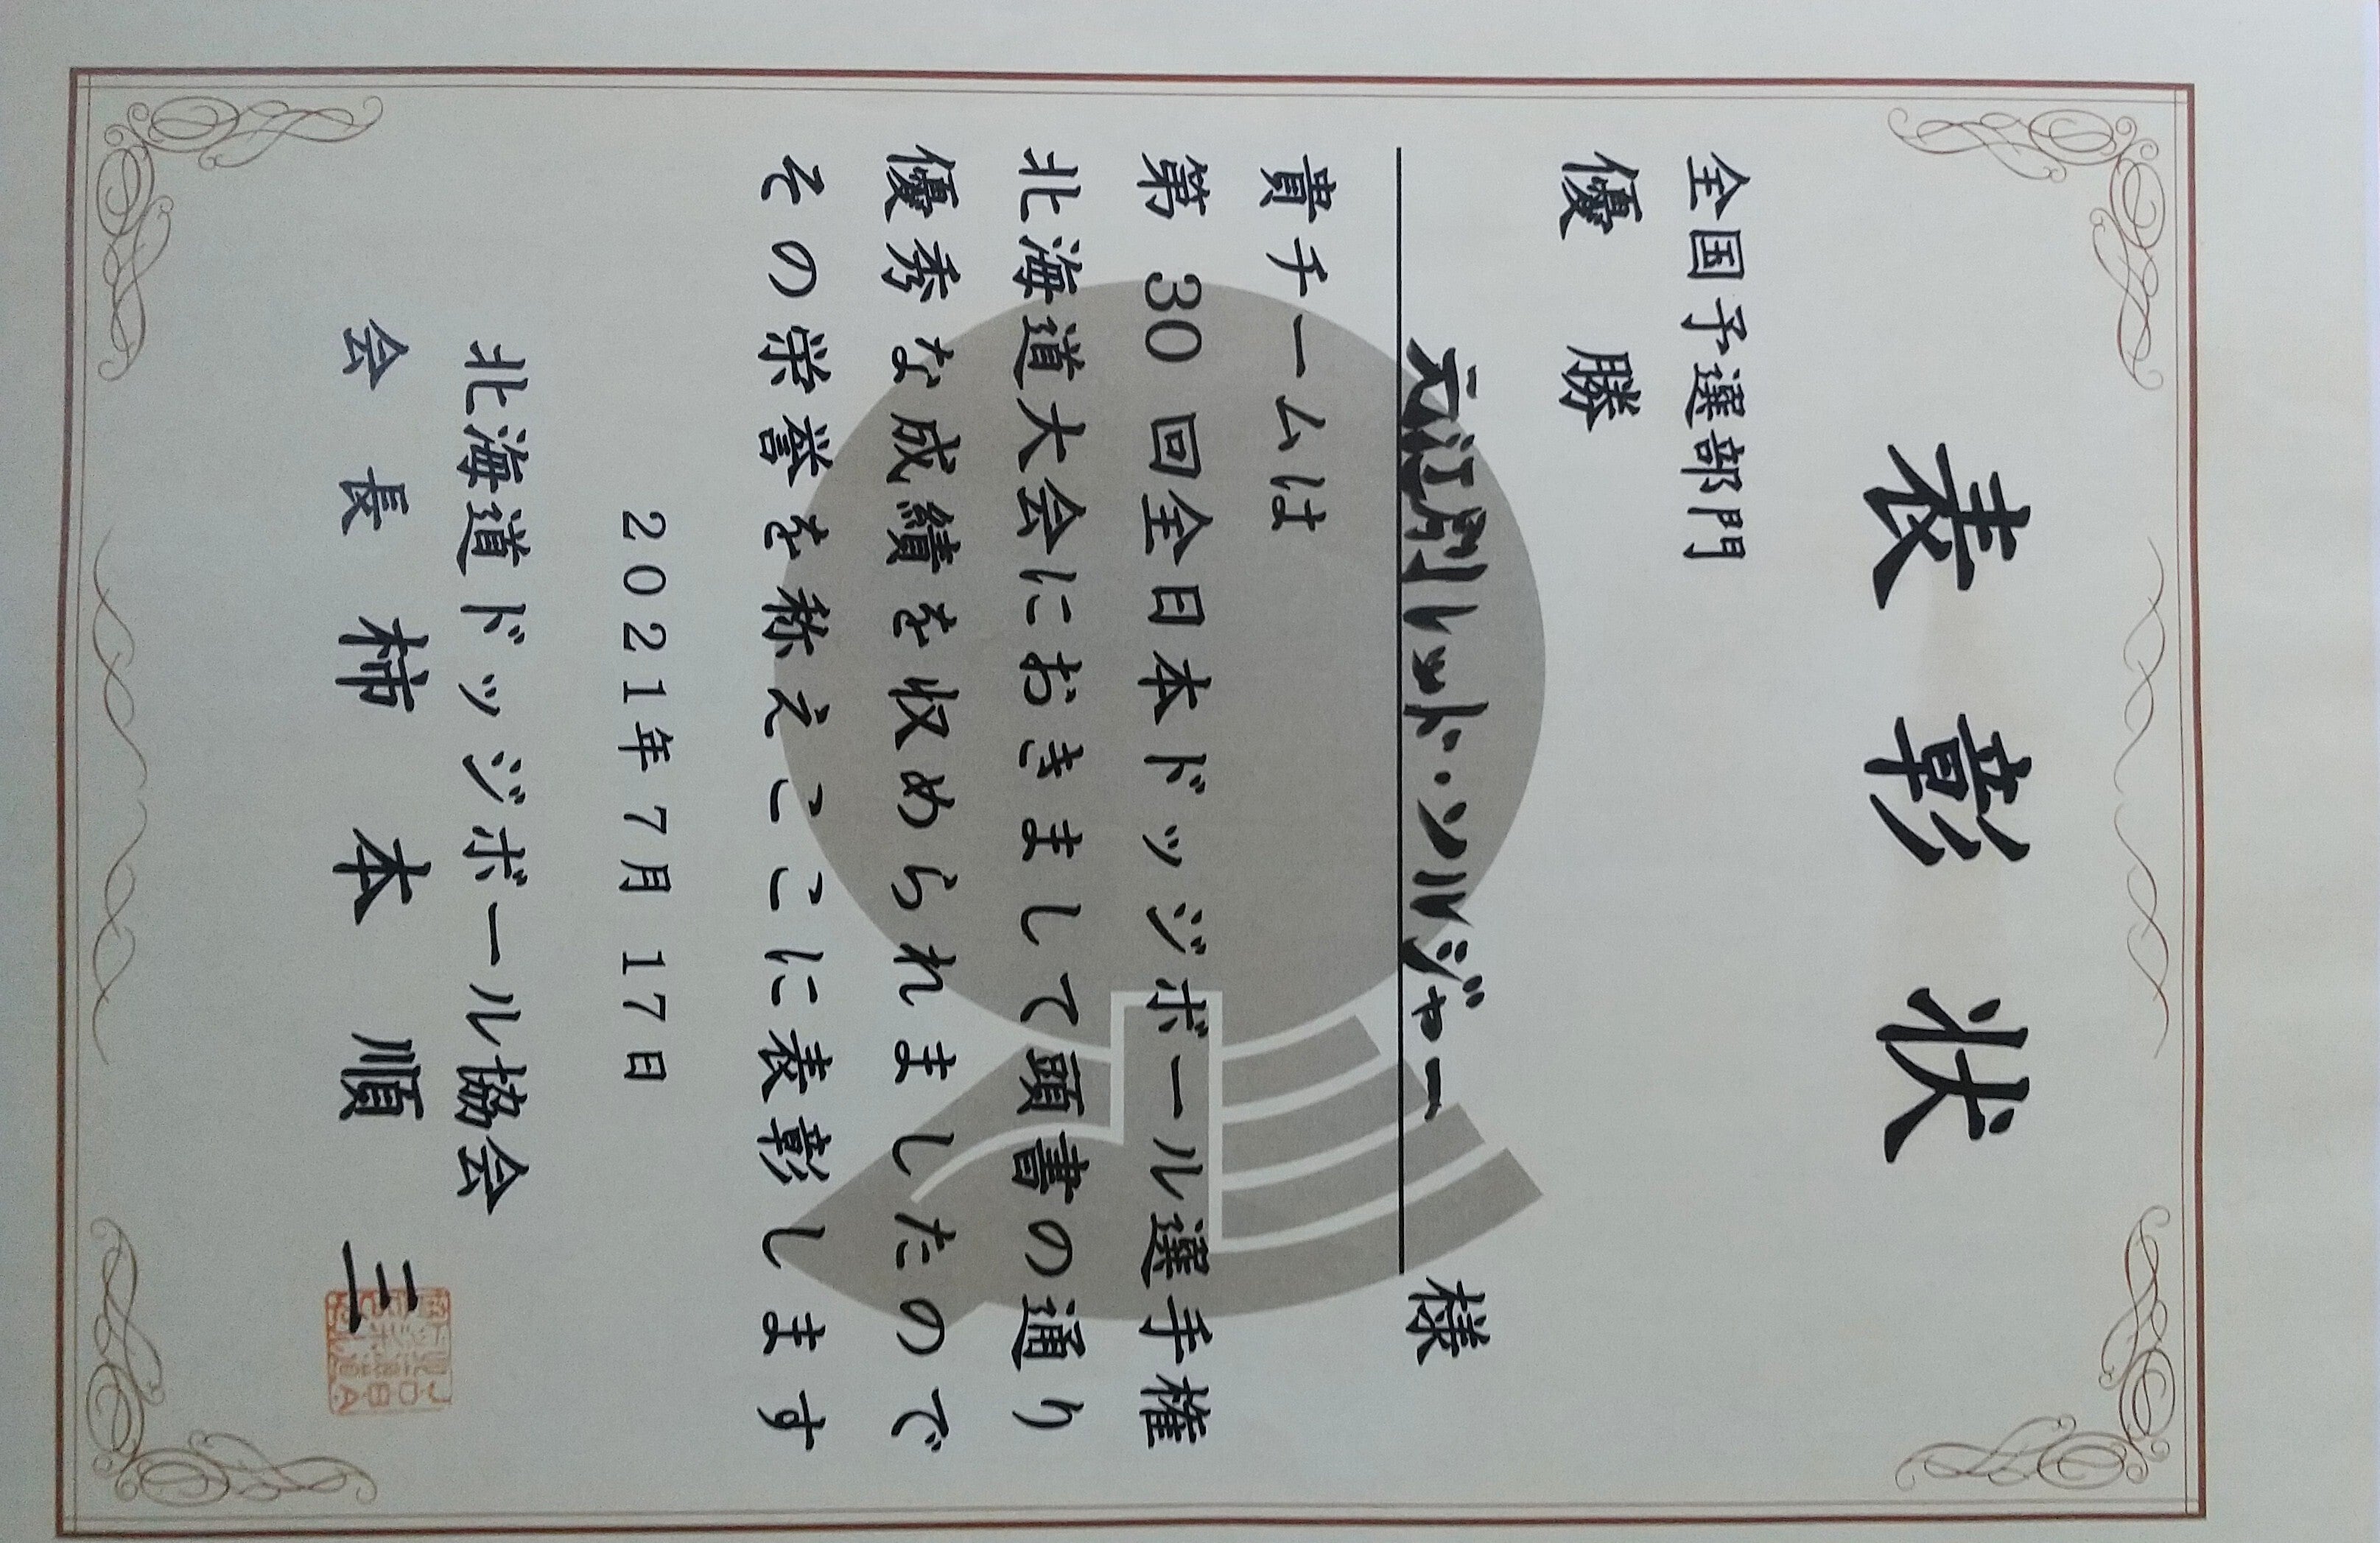 表彰状
全国予選部門
優勝
元江別レッド・ソルジャー 様
貴チームは
第30回全日本ドッジボール選手権
北海道大会におきまして頭書の通り
優秀な成績を収められましたので
その栄誉を称えここに表彰します
2021年7月17日
北海道ドッジボール協会
会長 柿本順三
J.D.B.A